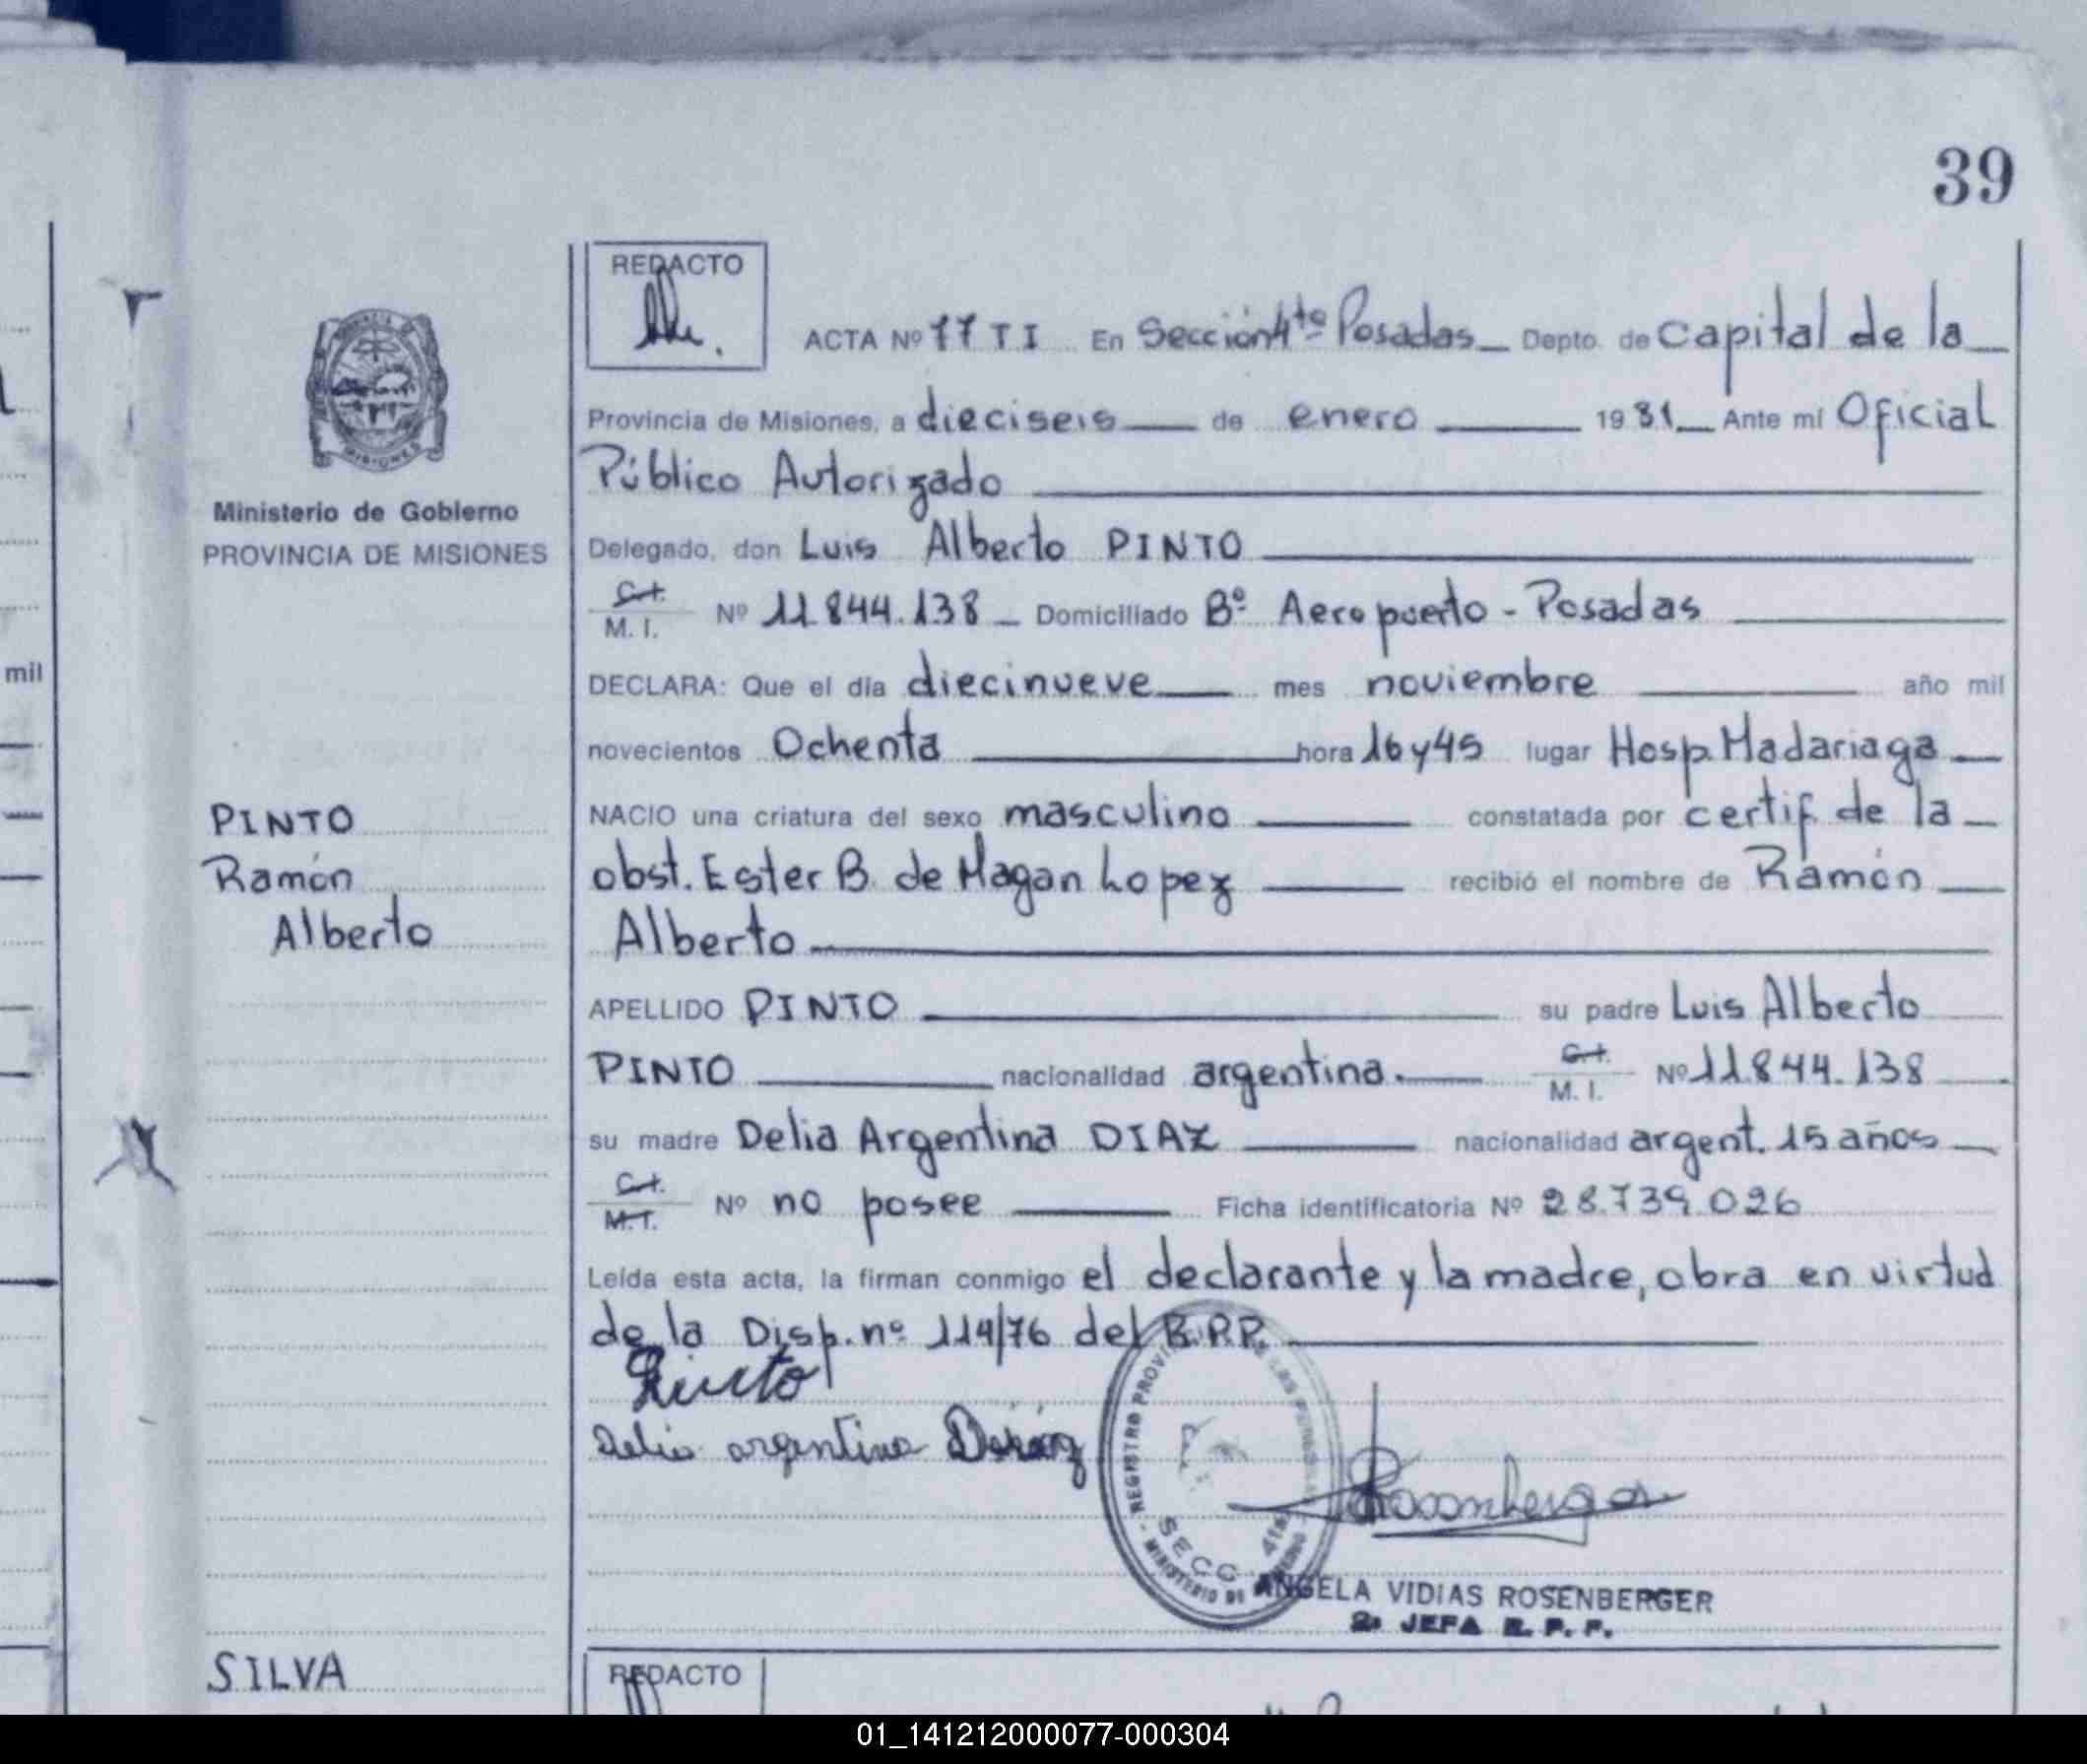 39
REDACTO
ACTA Nº 77 T I En Sección 4ta Posadas Depto. de Capital de la
Provincia de Misiones, a dieciseis de enero 1981 Ante mí Oficial
Público Autorizado
Ministerio de Gobierno
PROVINCIA DE MISIONES
Delegado, don Luis Alberto PINTO
C.I.
M. I. Nº 11.844.138 Domiciliado Bº Aeropuerto - Posadas
mil
DECLARA: Que el día diecinueve mes noviembre año mil
novecientos Ochenta hora 16 y 45 lugar Hosp. Madariaga
PINTO
Ramón
Alberto
NACIO una criatura del sexo masculino constatada por certif. de la
obst. Ester B. de Magan Lopez recibió el nombre de Ramón
Alberto
APELLIDO PINTO su padre Luis Alberto
PINTO nacionalidad argentina. C.I. M. I. Nº 11.844.138
su madre Delia Argentina DIAZ nacionalidad argent. 15 años
C.I.
M.I. Nº no posee Ficha identificatoria Nº 28.739.026
Leída esta acta, la firman conmigo el declarante y la madre, obra en virtud
de la Disp. nº 114/76 del R.P.P.
Pinto
Delia argentina
REGISTRO PROVI DE LAS PERSONAS
SECC 4ta
MINISTERIO DE GOBIERNO
ANGELA VIDIAS ROSENBERGER
2a JEFA R. P. P.
SILVA
REDACTO
01_141212000077-000304